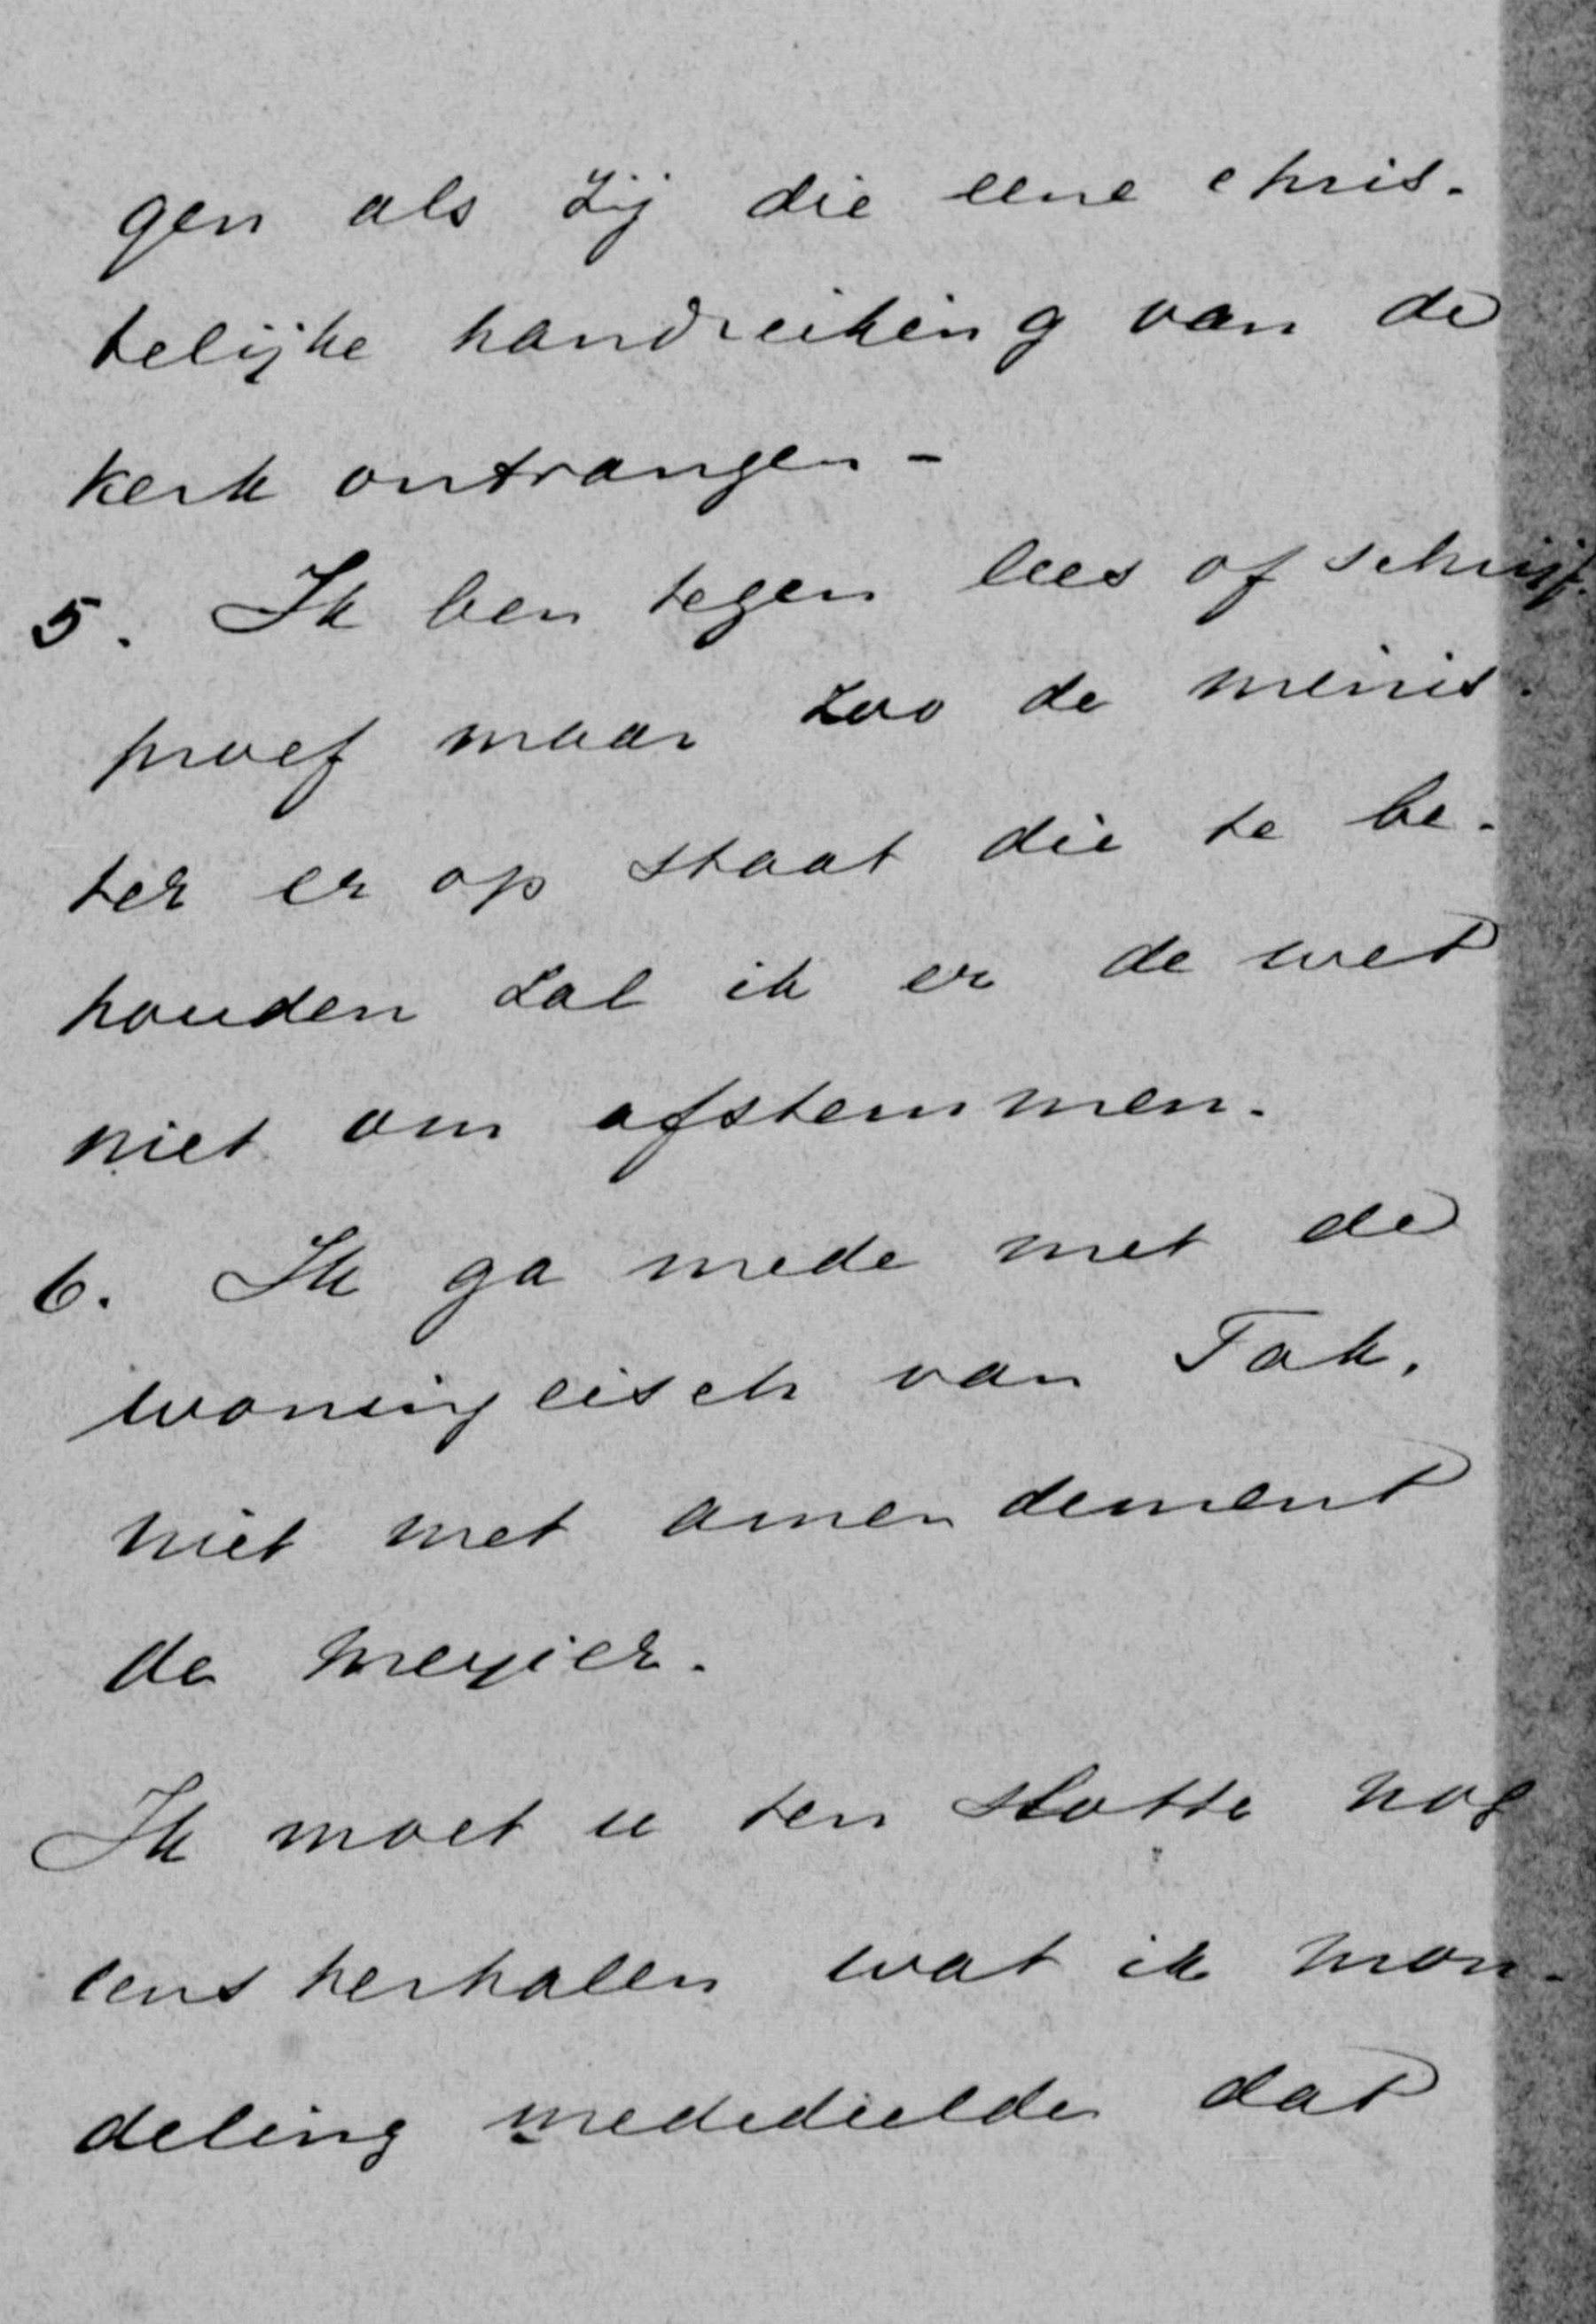 gen als zij die eene chris-
telijke handreiking van de
kerk ontvangen -
5. Ik ben tegen lees of schrijf-
proef maar zoo de minis-
ter er op staat die te be-
houden zal ik er de wet
niet om afstemmen.
6. Ik ga mede met de
woningeisch van Tak,
niet met amendement
de Meyier.
Ik moet u ten slotte nog
eens herhalen wat ik mon-
deling mededeelde dat